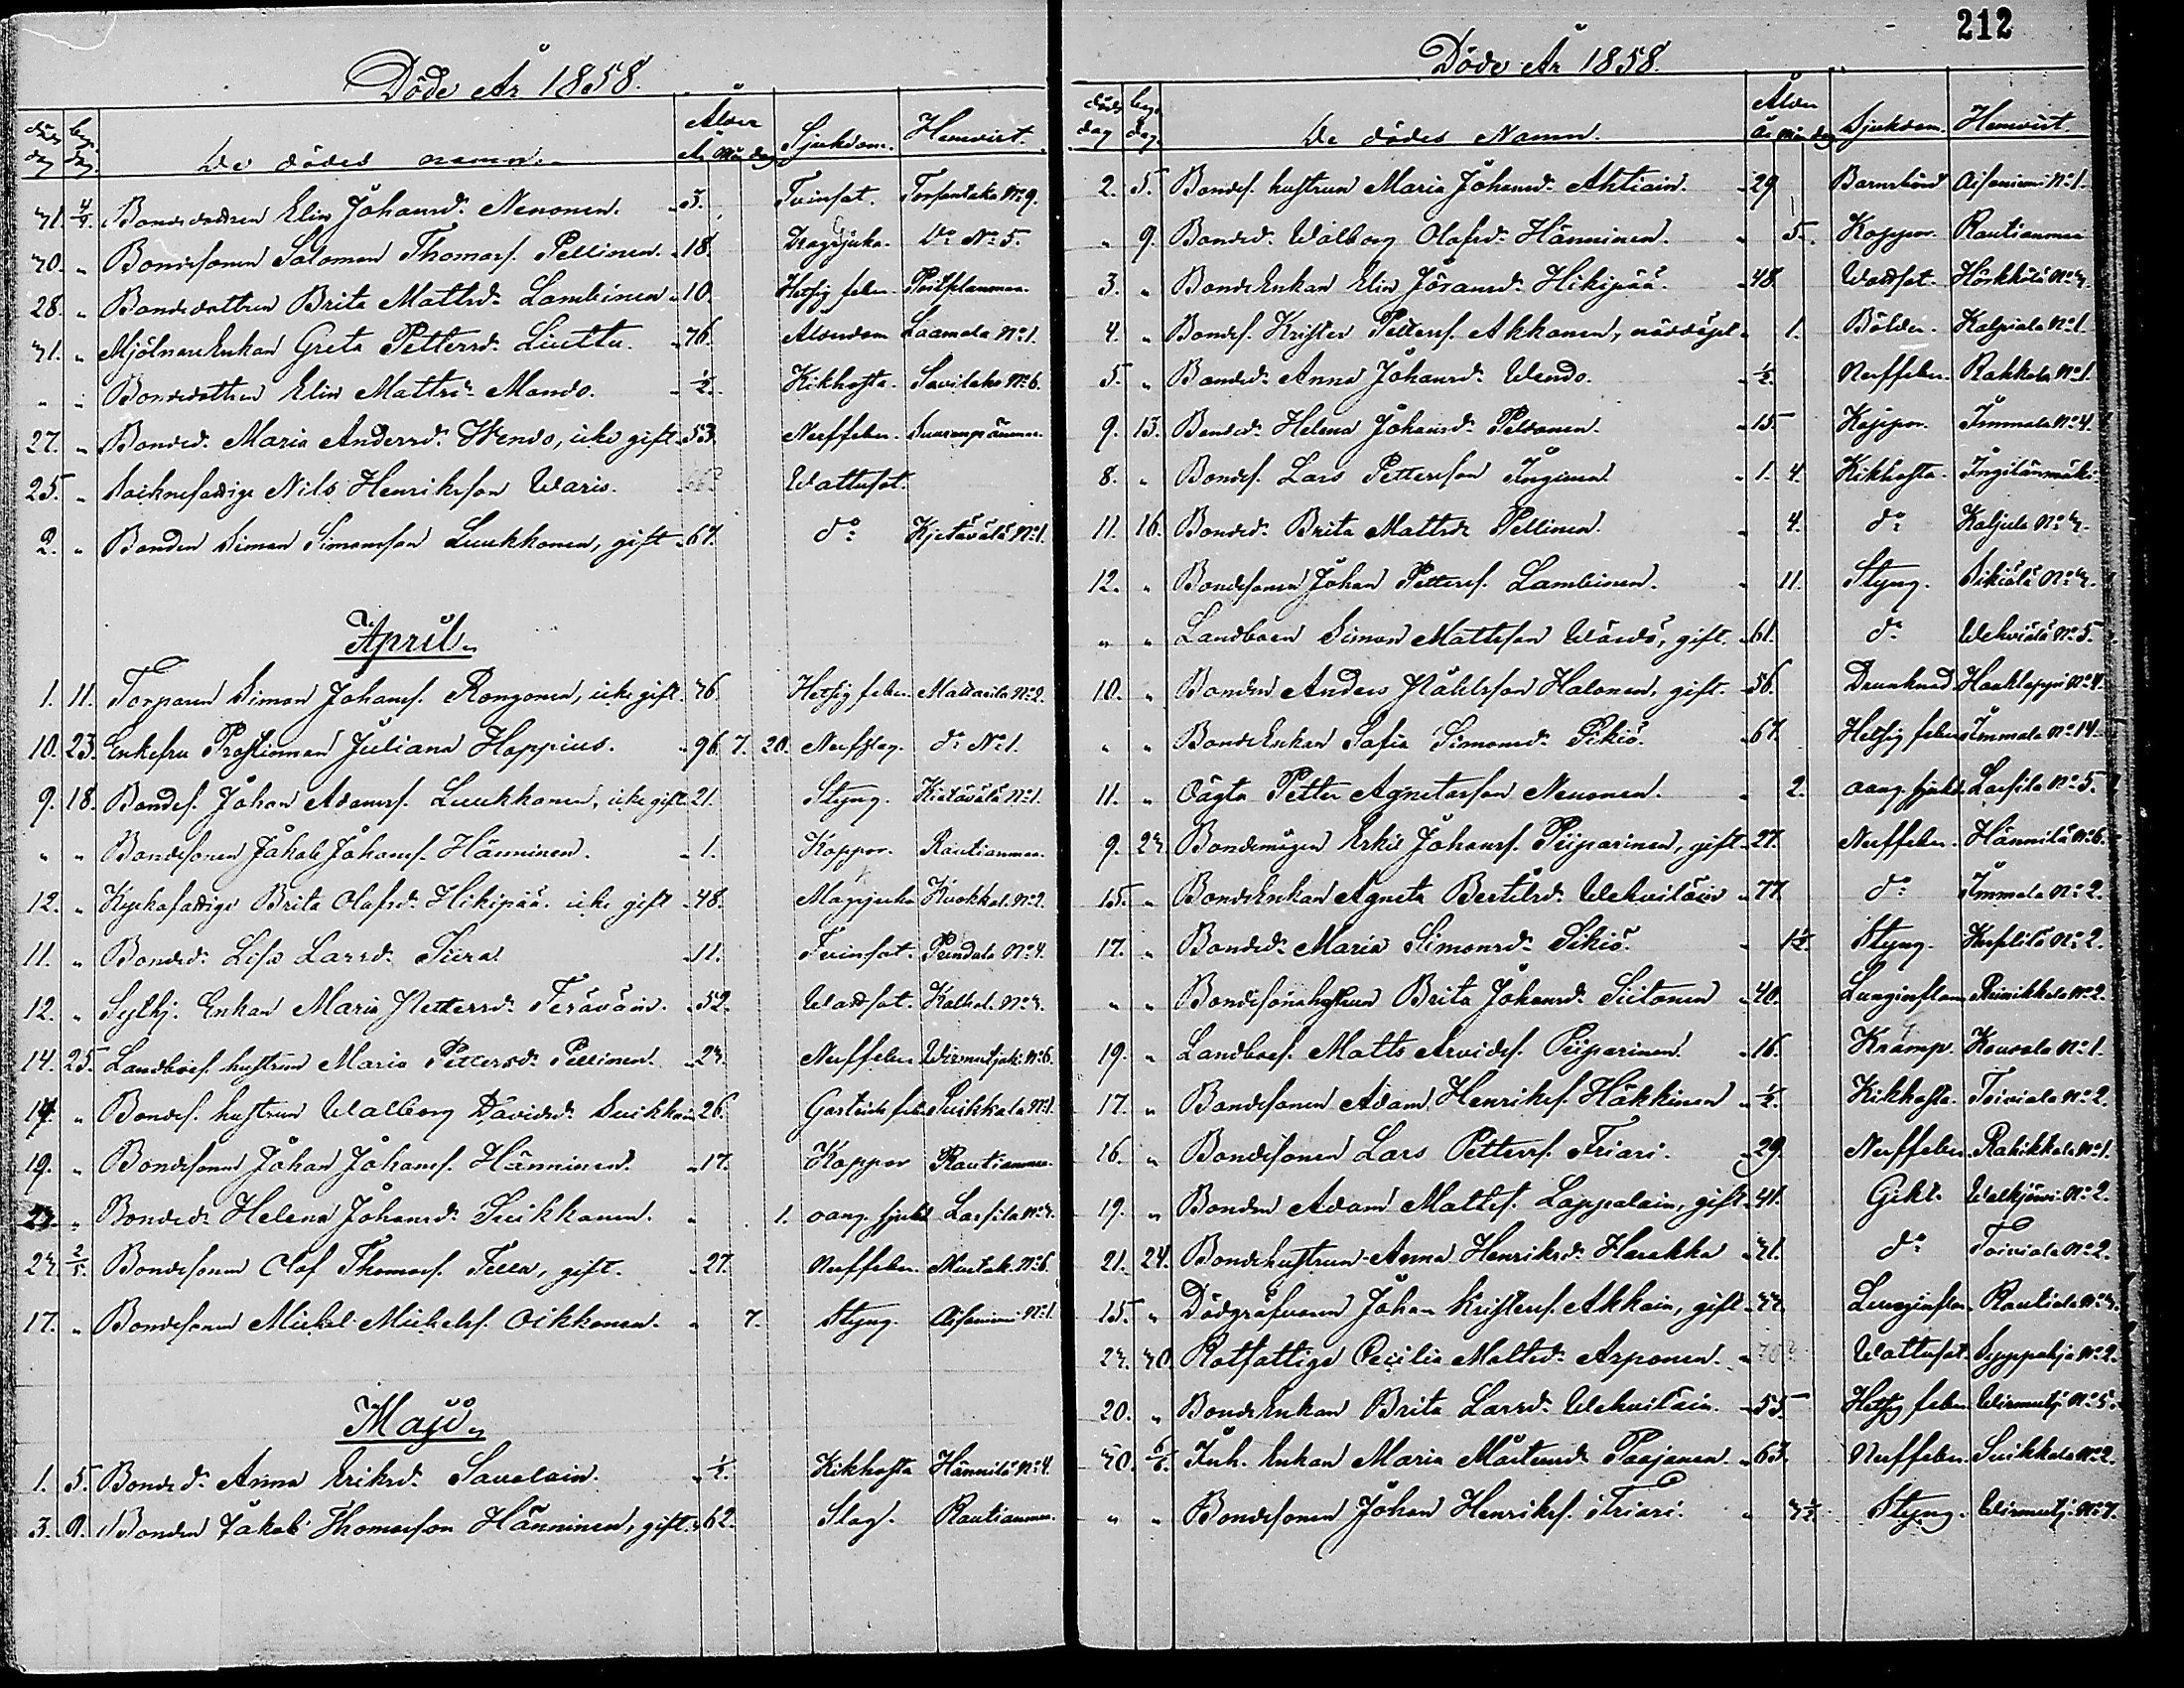 212
Döde År 1858.
döds dag begr. dag De dödes namn. Ålder År Mån dag Sjukdom. Hemvist.
31. 4/4 Bondedottren Elin Johansd: Nenonen. 3. Tvinsot. Torsantaka No 9.
30. " Bondesonen Salomon Thomasf. Pellinen. 18. Dragsjuka. Do No 5.
28. " Bondedottren Brita Mattsd: Lambinen 10. Hetsig feber.
31. " Mjölnare Enkan Greta Pettersd: Liuttu. 76. Ålderdom Laamala No 1.
" " Bondedottren Elin Mattsd: Mando. 1/2. Kikhosta. Savilaks No 6.
27. " Bonded: Maria Andersd: Wendo, icke gift. 53. Nerffeber.
25. " Socknefattige Nils Henriksson Waris. 66? Wattusot.
2. " Bonden Simon Simonsson Luukkonen, gift 67. do Kjetävälä No 1.
April.
1. 11. Torparen Simon Johansf. Rongonen, icke gift. 76. Hetsig feber. Mattarila No 2.
10. 23. Enkefru Prostinnan Juliana Hoppius. 96. 7. 20. Nerfslag. do No 1.
9. 18. Bondes. Johan Adamsf. Luukkonen, icke gift 21. Styng. Kietävälä No 1.
" " Bondesonen Jakob Johansf. Hänninen. 1. Koppor. Rautianmaa.
12. " Kyrkofattige Brita Olafsd: Hikipää icke gift 48. Magsjuka Kuokkal. No 2.
11. " Bonded: Lisa Larsd: Siira 11. Tvinsot. Pundala No 4.
12. " Sytkj. Enkan Maria Pettersd: Teräväin. 52. Wattsot. Kalkal. No 3.
14. 25. Landbof. hustrun Maria Pettersd: Pellinen. 23. Nerffeber Wirmutjoki No 6.
14. " Bondes. hustrun Walborg Davidsd: Suikkain 26. Gastrisk feb. Suikkala No 1.
19. " Bondesonen Johan Johansf. Hänninen. 17. Koppor Rautianmaa.
23. " Bonded: Helena Johansd: Suikkanen. " 1. oang. sjukd Lassila No 3.
23. 2/5. Bondesonen Olof Thomasf. Tella, gift. 27. Nerffeber. No 6.
17. " Bondesonen Mickel Mickelsf. Oikkonen. " 7. Styng. Aisoniemi No 1.
Maji.
1. 5. Bonde d: Anna Eriksd: Savolain. 1/2. Kikhosta Hännilä No 4.
3. 9. Bonden Jakob Thomasson Hänninen, gift. 62. Slag. Rautianmaa.
Döde År 1858.
döds dag begr. dag. De dödes Namn. Ålder År Mån dag Sjukdom. Hemvist.
2. 5. Bondes. hustrun Maria Johansd: Ahtiain. 29 Barnsbörd Aisoniemi No 1.
" 9. Bonded: Walborg Olafsd: Hänninen. " 5. Koppor. Rautianmaa
3. " Bonde Enkan Elin Jöransd: Hikipää. 48 Wattsot. Hörkkölä No 3.
4. " Bondes. Krister Pettersf. Akkanen, nöddöpt 1. Bölder. Kalpiala No 1.
5. " Bonded: Anna Johansd: Wendo. 1/2. Nerffeber. Rakkola No 1.
9. 13. Bonded: Helena Johansd: Peltonen. 15 Koppor. Immala No 4.
8. " Bondes. Lars Pettersson Inginen 1. 4. Kikhosta. Ingilänmäki.
11. 16. Bonded: Brita Mattsd: Pellinen. " 4. do Kaljula No 3.
12. " Bondesonen Johan Pettersf. Lambinen. " 11. Styng. Sikiälä No 3.
" " Landboen Simon Mattsson Wärdö, gift. 61. do Wehviälä No 5.
10. " Bonden Anders Påhlsson Halonen, gift. 56. Drunknad Hauklappi No 4.
" " Bonde Enkan Sofia Simonsd: Sikiö. 67. Hetsig feber Immala No 14.
11. " oägta Petter Agnetasson Nenonen. " 2. oang. sjukd. Lassila No 5.
9. 23. Bondemågen Erkki Johansf. Piiparinen, gift 27. Nerffeber. Hännilä No 6.
15. " Bonde Enkan Agneta Bertilsd: Wehviläin 77. do Immala No 2.
17. " Bonded: Maria Simonsd: Sikiö. " 1 1/2 Styng. No 2.
" " Bondesonshustrun Brita Johansd: Siitonen 40. Lunginflam. No 2.
19. " Landboes. Matts Arvidsf. Piiparinen. 16. Kramp. Kouvola No 1.
17. " Bondesonen Adam Henriksf. Häkkinen 1/2. Kikhosta. Toiviala No 2.
16. " Bondesonen Lars Pettersf. Friari. 29. Nerffeber. Rahikkala No 1.
19. " Bonden Adam Mattsf. Lappalain, gift 41. Gikt. Walkjärvi No 2.
21. 24. Bondehustrun Anna Henriksd: Harakka 31. do Toiviala No 2.
15. " Dödgräfvaren Johan Kristersf. Akkain, gift 33. Lunginflam. Rautiala No 3.
23. 30. Rotfattige Cecilia Mattsd: Asponen. 70? Wattusot. No 2.
20. " Bonde Enkan Brita Larsd: Wehviläin. 55. Hetsig feber. Wirmutj. No 5.
30. 6/6. Inh. Enkan Maria Mårtensd: Paajanen. 63. Nerffeber. Suikkala No 2.
" " Bondesonen Johan Henriksf. Friari. " 3 1/2 Styng. Wirmutj. No 7.